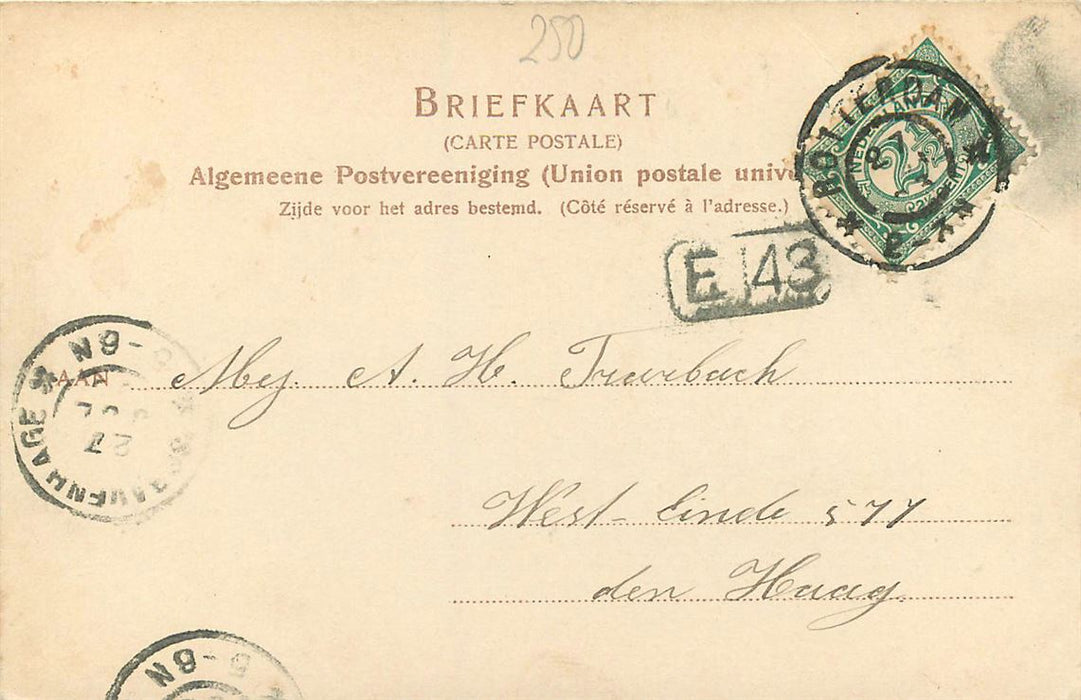 250
BRIEFKAART
(CARTE POSTALE)
Algemeene Postvereeniging (Union postale univ
Zijde voor het adres bestemd. (Côté réservé à l'adresse.)
ROTTERDAM
2½
E 43
AAN Mej. A. H. Traarbach
West-Einde 577
den Haag.
'S GRAVENHAGE
8-9N
27
8-9N